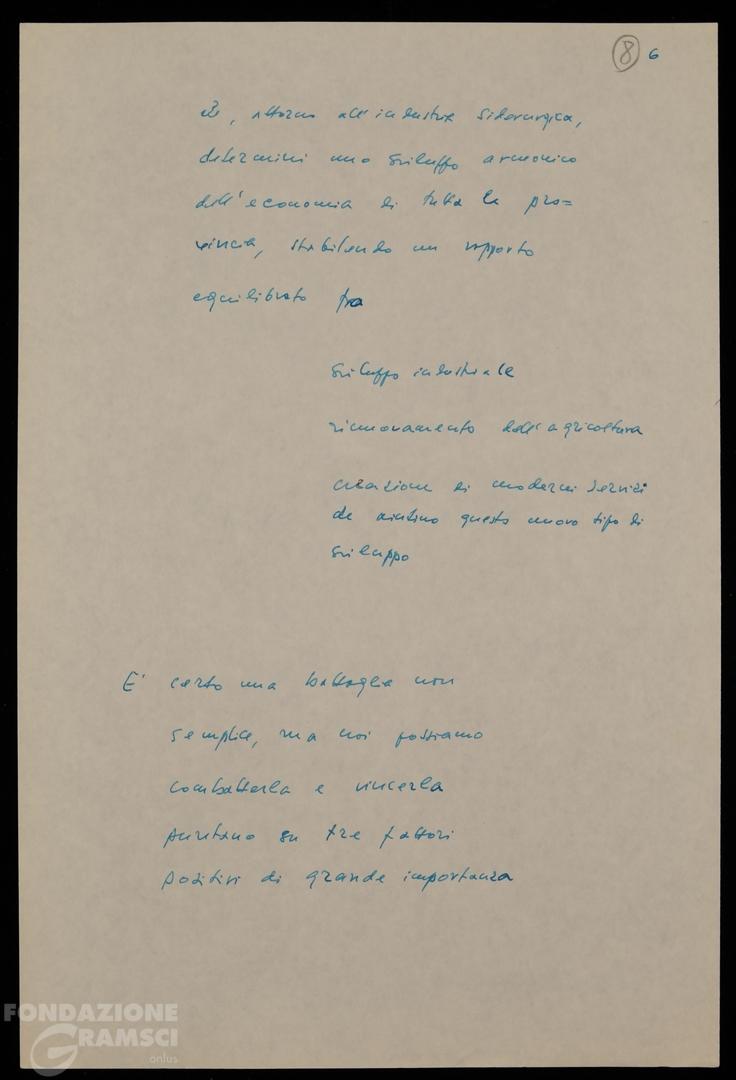 8 6
che, attorno all'industria siderurgica,
determini uno sviluppo armonico
dell'economia di tutta la pro=
vincia, stabilendo un rapporto
equilibrato fra
sviluppo industriale
rinnovamento dell'agricoltura
creazione di moderni servizi
che aiutino questo nuovo tipo di
sviluppo
E' certo una battaglia non
semplice, ma noi possiamo
combatterla e vincerla
puntano su tre fattori
positivi di grande importanza
FONDAZIONE
GRAMSCI
onlus